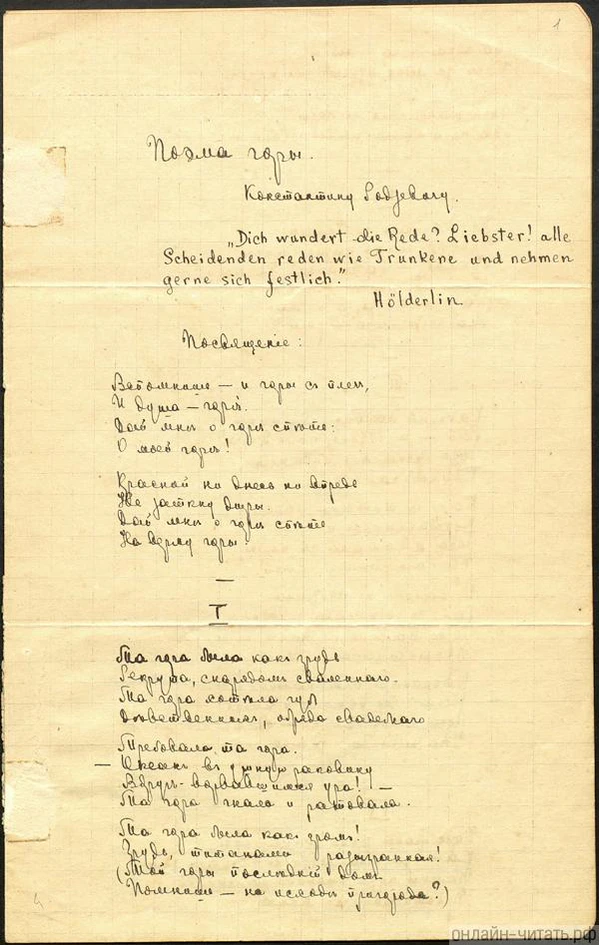 1
Поэма горы.
Константину Родзевичу.
„Dich wundert die Rede? Liebster! alle
Scheidenden reden wie Trunkene und nehmen
gerne sich festlich."
Hölderlin.
Посвященiе:
Вспомнишь — и горы съ плечъ,
И душа — горѣ.
Дай мнѣ о горѣ спѣть:
О моей горѣ!
Красной ни днесь ни впредь
Не заткну дыры.
Дай мнѣ о горѣ спѣть
На верху горы.
—
I
Та гора была какъ грудь
Рекрута, снарядомъ сваленнаго.
Та гора хотѣла губъ
Дѣвственныхъ, обряда свадебнаго
Требовала та гора.
— Океанъ въ ушную раковину
Вдругъ-ворвавшимся ура! —
Та гора гнала и ратовала.
Та гора была какъ громъ!
Грудь, титанами разыгранная!
(Той горы послѣднiй домъ
Помнишь — на исходѣ пригорода?)
онлайн-читать.рф